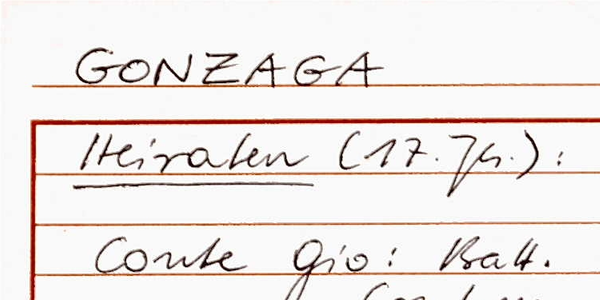 GONZAGA
Heiraten (17. Jh.):
Conte Gio: Batt.